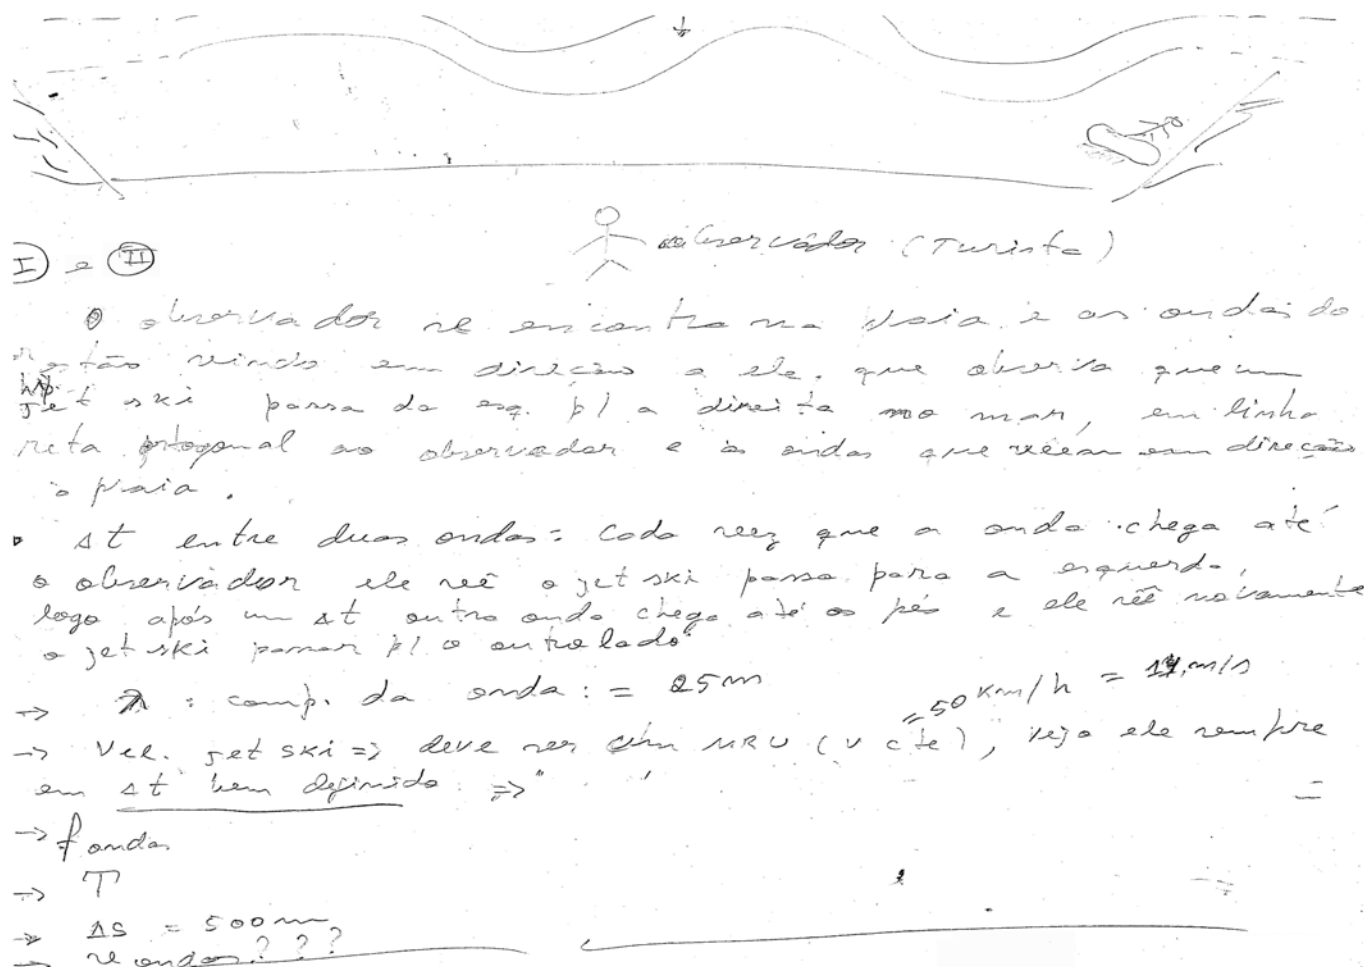 observador (Turista)
I e II
O observador se encontra na praia e as ondas do
estão vindo em direção a ele, que observa que um
jet ski passa da esq. p/ a direita no mar, em linha
reta ortogonal ao observador e às ondas que vêem em direção
à praia.
Δt entre duas ondas: Cada vez que a onda chega até
o observador ele vê o jet ski passa para a esquerda,
logo após um Δt outra onda chega até os pés e ele vê novamente
o jet ski passar p/ o outro lado
→ λ : comp. da onda : = 25m
= 50 Km/h = m/s
→ Vel. jet ski => deve ser um MRU (v cte), veja ele sempre
em Δt bem definido =>
→ f ondas
→ T
→ ΔS = 500m
→ ondas???